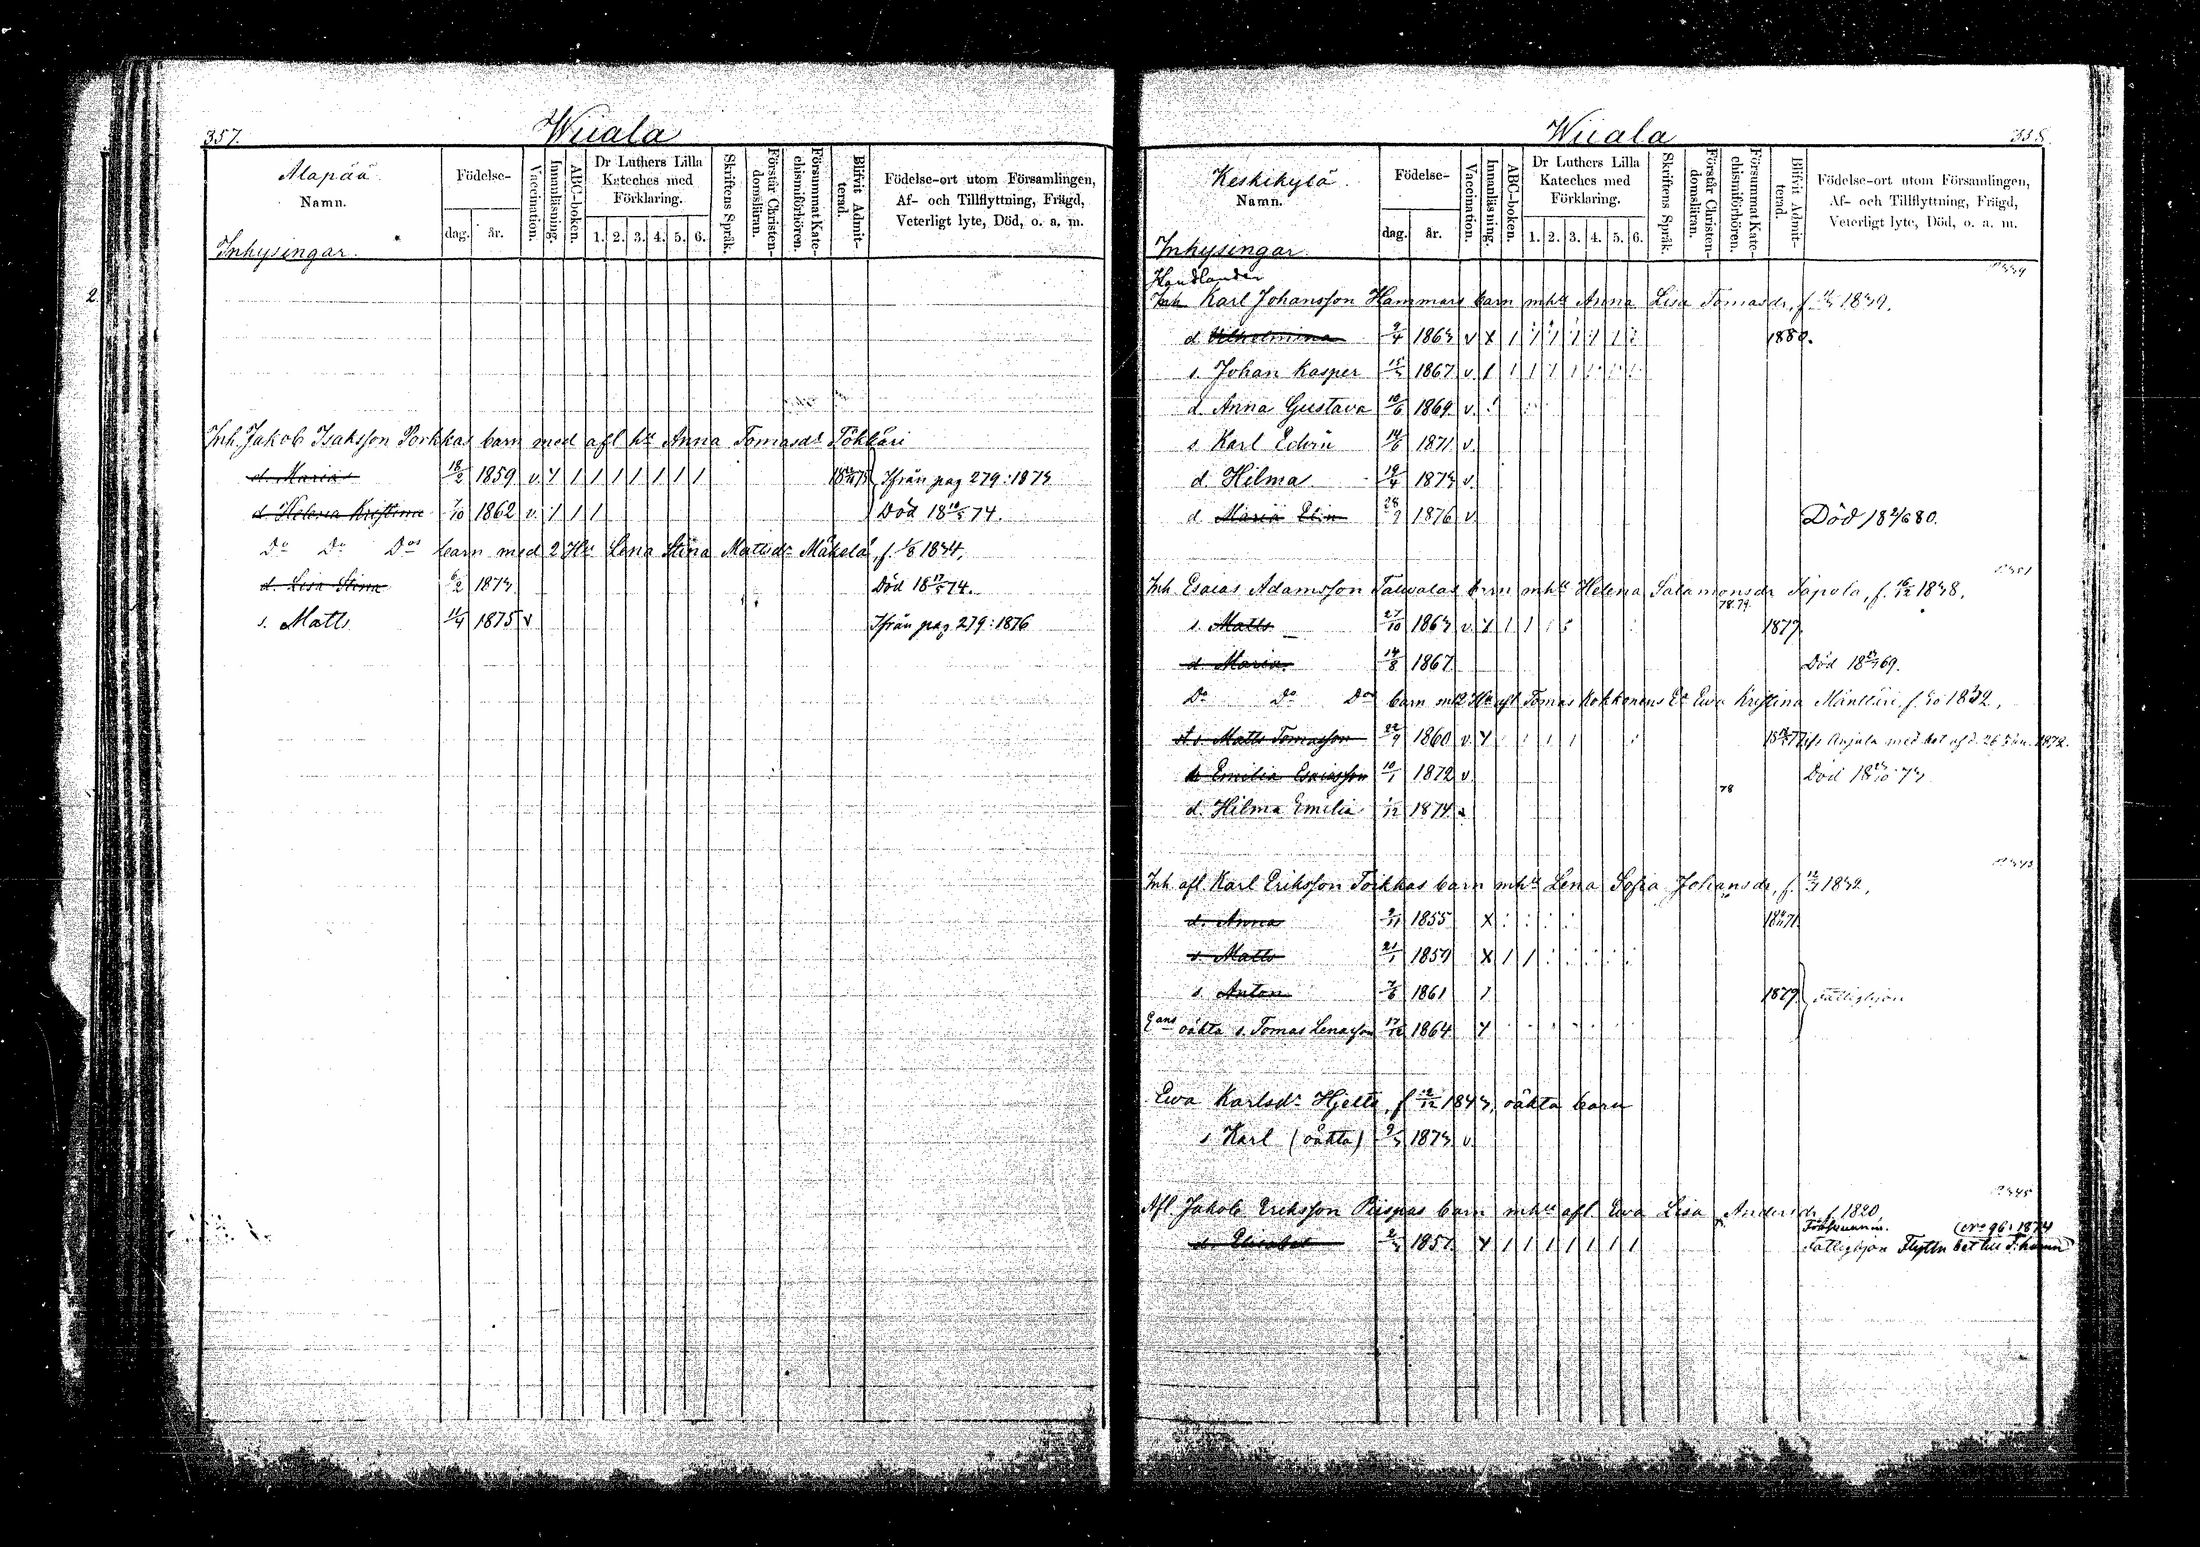 357.
Wiiala
Alapää
Namn.
Inhysingar.
Födelse-
dag.
år.
Vaccination.
Innanläsning.
ABC-boken.
Dr Luthers Lilla
Kateches med
Förklaring.
1. 2. 3. 4. 5. 6.
Skriftens Språk.
Förstår Christen-
domsläran.
Försummat Kate-
chismiförhören.
Blifvit Admit-
terad.
Födelse-ort utom Församlingen,
Af- och Tillflyttning, Frägd,
Veterligt lyte, Död, o. a. m.
2.
Inh. Jakob Isaksson Porkkas barn med afl hu Anna Tomasdr Tökkäri
d. Maria 18/2 1859 v. Ifrån pag 279:1873
d Helena Kristina 7/10 1862 v. Död 74.
Do Do Dos barn med 2 Hu Lena Stina Mattsdr Mäkelä, f. 1/8 1834,
d. Lisa Stina 6/2 1873 Död 74.
s. Matts 11/4 1875 v Ifrån pag 279:1876
Wiiala
358.
Keskikylä
Namn.
Inhysingar
Födelse-
dag.
år.
Vaccination.
Innanläsning.
ABC-boken.
Dr Luthers Lilla
Kateches med
Förklaring.
1. 2. 3. 4. 5. 6.
Skriftens Språk.
Förstår Christen-
domsläran.
Försummat Kate-
chismiförhören.
Blifvit Admit-
terad.
Födelse-ort utom Församlingen,
Af- och Tillflyttning, Frägd,
Veterligt lyte, Död, o. a. m.
Handlanden
Inh Karl Johansson Hammars barn mhu Anna Lisa Tomasdr, f. 1839.
d. Vilhelmina 9/4 1863 v x 1880.
s. Johan Kasper 1867 v.
d. Anna Gustava 10/6 1869 v.
s Karl Edvin 14/6 1871 v.
d. Hilma 19/4 1873 v.
d Maria Elin 1876 v. Död 80.
Inh. Esaias Adamsson Talwalas barn mhu Helena Salamonsdr Tapola, f. 16/12 1838,
78.79
s. Matts 27/10 1863 v. 1877.
d Maria 14/8 1867 Död 69.
Do Do Dos barn m 2 Hu afl Tomas Kokkonens Ea Ewa Kristina Mänttäri f. 1832,
st s. Matts Tomasson 22/9 1860 v. Anjala med bet af d. 26 1872.
Emilia Esaiasson 10/1 1872 v. Död 73
78
d. Hilma Emilia 1/12 1874
Inh. afl. Karl Eriksson Torkkas barn mhu Lena Sofia Johansdr, f. 1832,
d. Anna 9/11 1855 x 71.
s. Matts 21/1 1859 x
s. Anton 7/6 1861 1879. Fattighjon
oäkta s. Tomas Lenasson 17/12 1864
Ewa Karlsdr Hjelte, f 12/12 1843, oäkta barn
s Karl (oäkta) 1873 v.
Afl Jakob Eriksson Piispas barn mhu afl. Ewa Lisa Andersdr, f. 1820,
d. Elisabet 1851 Fattighjon Flyttn bet till